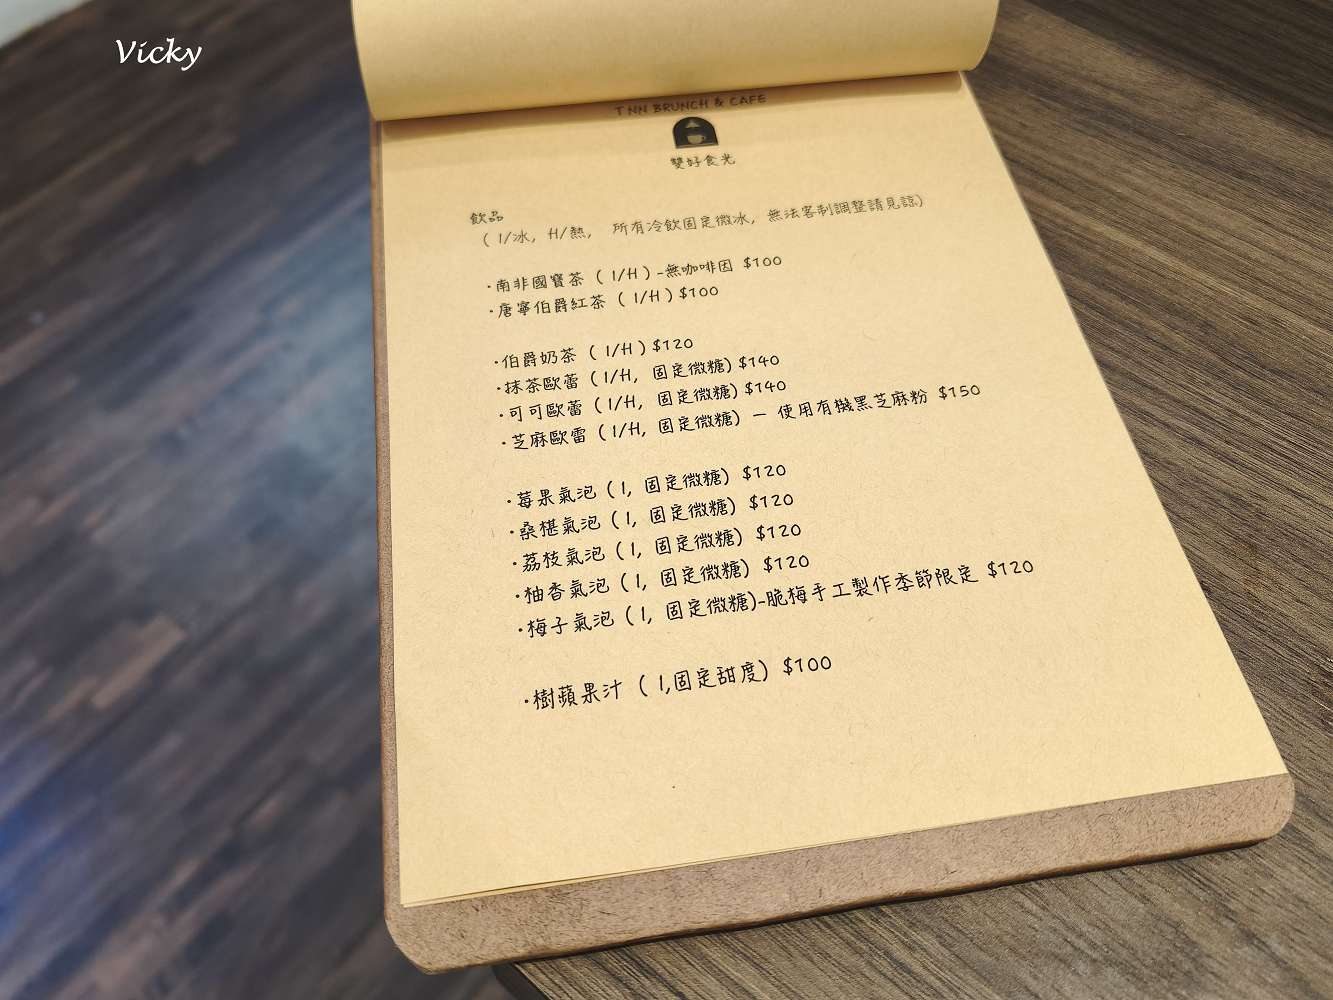 Vicky
TNN BRUNCH & CAFE
雙好食光
飲品
( I/冰, H/熱, 所有冷飲固定微冰, 無法客制調整請見諒)
·南非國寶茶 ( I/H )-無咖啡因 $100
·唐寧伯爵紅茶 ( I/H )$100
·伯爵奶茶 ( I/H )$120
·抹茶歐蕾 ( I/H, 固定微糖) $140
·可可歐蕾 ( I/H, 固定微糖) $140
·芝麻歐雷 ( I/H, 固定微糖) – 使用有機黑芝麻粉 $150
·莓果氣泡 ( I, 固定微糖) $120
·桑椹氣泡 ( I, 固定微糖) $120
·荔枝氣泡 ( I, 固定微糖) $120
·柚香氣泡 ( I, 固定微糖) $120
·梅子氣泡 ( I, 固定微糖)-脆梅手工製作季節限定 $120
·樹蘋果汁 ( I,固定甜度) $100